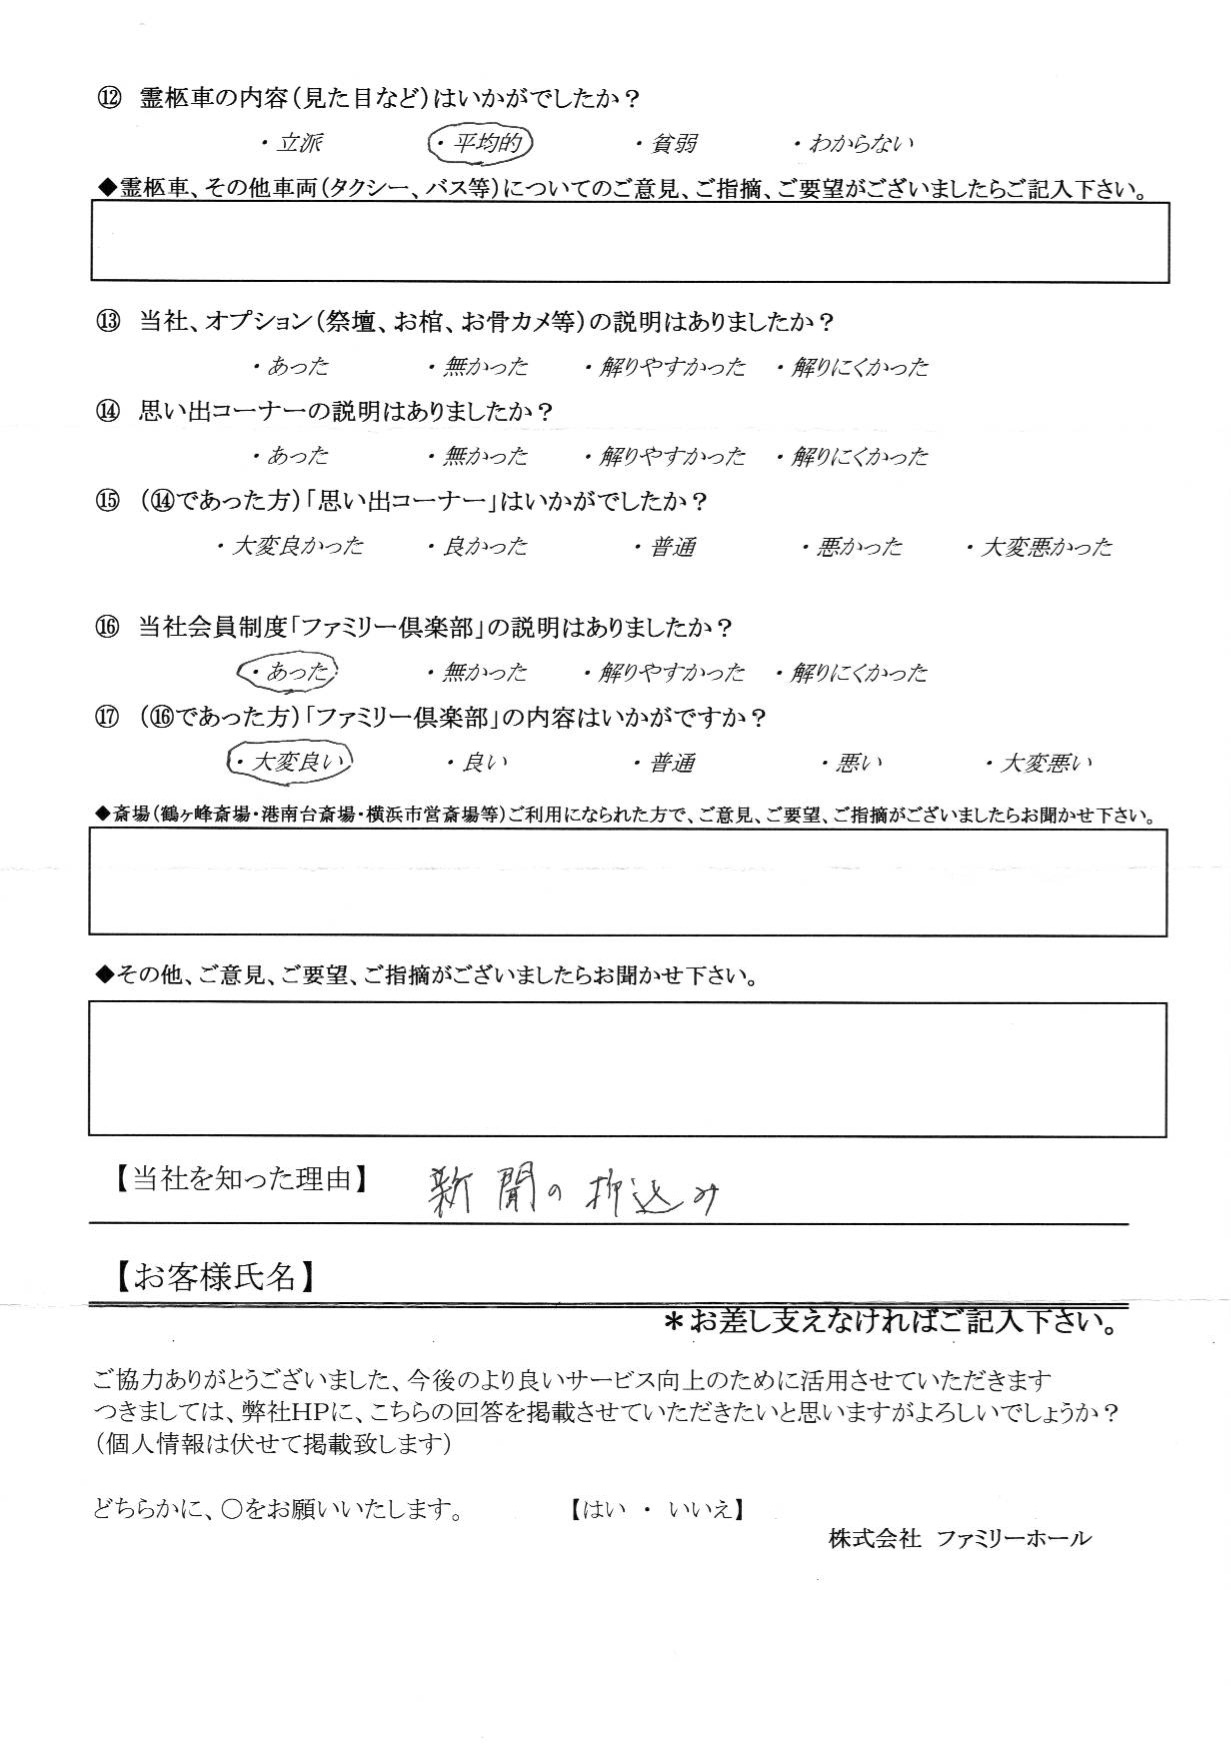 ⑫ 霊柩車の内容(見た目など)はいかがでしたか？
・立派 ・平均的 ・貧弱 ・わからない
◆霊柩車、その他車両(タクシー、バス等)についてのご意見、ご指摘、ご要望がございましたらご記入下さい。
⑬ 当社、オプション(祭壇、お棺、お骨カメ等)の説明はありましたか？
・あった ・無かった ・解りやすかった ・解りにくかった
⑭ 思い出コーナーの説明はありましたか？
・あった ・無かった ・解りやすかった ・解りにくかった
⑮ (⑭であった方)「思い出コーナー」はいかがでしたか？
・大変良かった ・良かった ・普通 ・悪かった ・大変悪かった
⑯ 当社会員制度「ファミリー倶楽部」の説明はありましたか？
・あった ・無かった ・解りやすかった ・解りにくかった
⑰ (⑯であった方)「ファミリー倶楽部」の内容はいかがですか？
・大変良い ・良い ・普通 ・悪い ・大変悪い
◆斎場(鶴ヶ峰斎場・港南台斎場・横浜市営斎場等)ご利用になられた方で、ご意見、ご要望、ご指摘がございましたらお聞かせ下さい。
◆その他、ご意見、ご要望、ご指摘がございましたらお聞かせ下さい。
【当社を知った理由】 新聞の折込み
【お客様氏名】
＊お差し支えなければご記入下さい。
ご協力ありがとうございました、今後のより良いサービス向上のために活用させていただきます
つきましては、弊社HPに、こちらの回答を掲載させていただきたいと思いますがよろしいでしょうか？
(個人情報は伏せて掲載致します)
どちらかに、○をお願いいたします。 【はい ・ いいえ】
株式会社 ファミリーホール